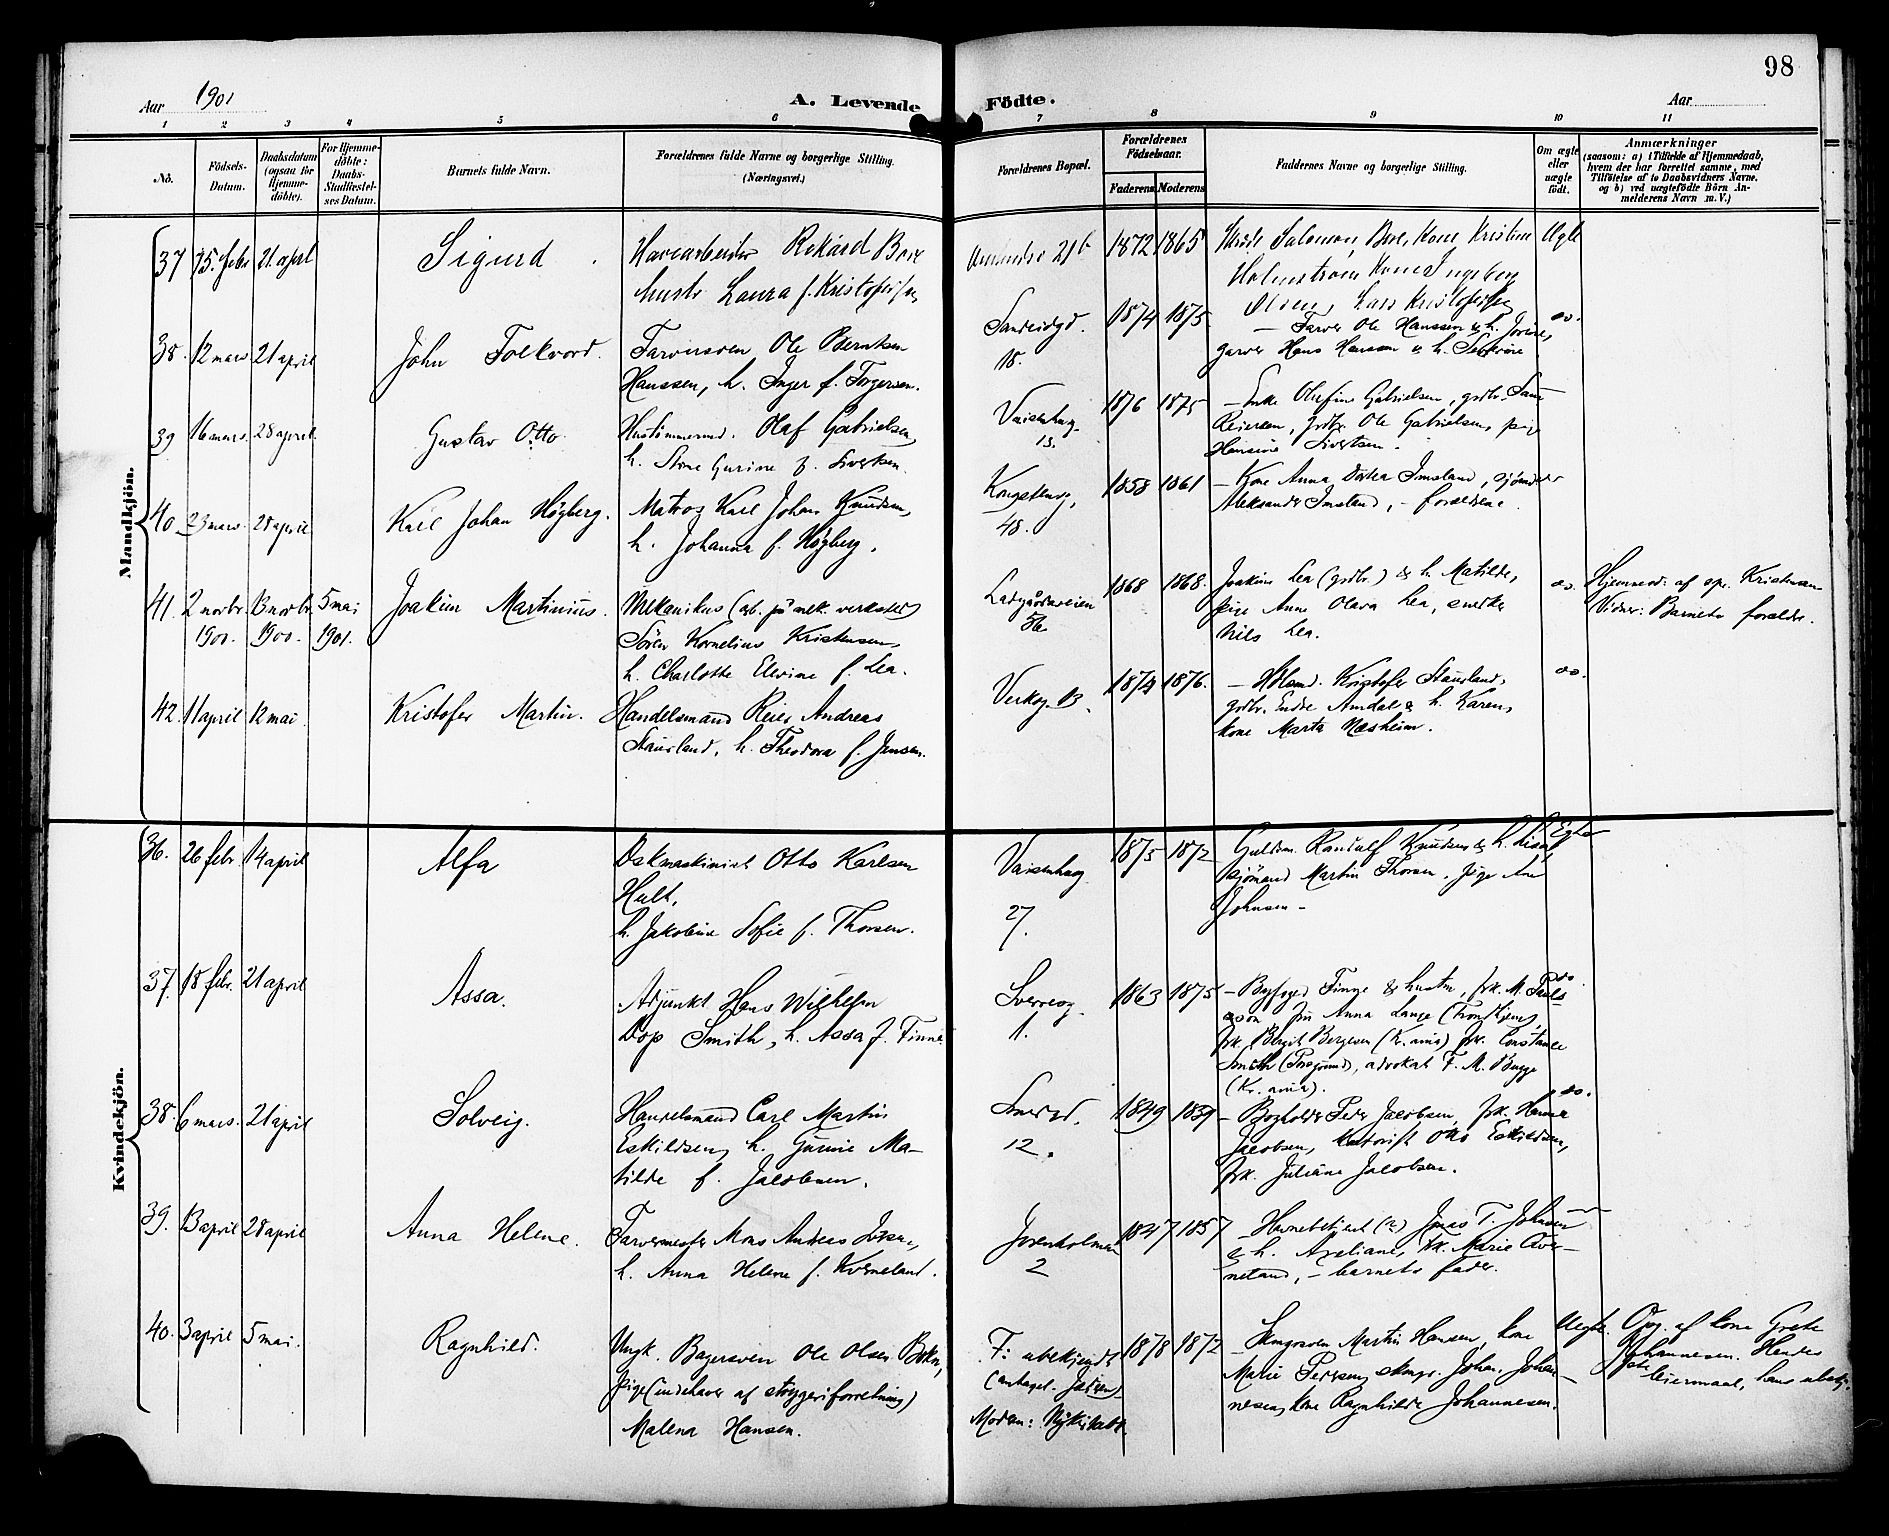 98
Aar 1901
A. Levende Födte.
Aar
1 2 3 4 5 6 7 8 9 10 11
No.
Födsels-Datum.
Daabsdatum (ogsaa for Hjemme-döbte).
For Hjemme-döbte: Daabs-Stadfæstel-ses Datum.
Barnets fulde Navn.
Forældrenes fulde Navne og borgerlige Stilling. (Næringsvei.)
Forældrenes Bopæl.
Forældrenes Födselsaar.
Faderens Moderens
Faddernes Navne og borgerlige Stilling.
Om ægte eller uægte födt.
Anmærkninger
(saasom: a) i Tilfælde af Hjemmedaab,
hvem der har forrettet samme, med
Tilföielse af to Daabsvidners Navne.
og b) ved uægtefödte Börn An-
melderens Navn m. V.)
Mandkjön.
37 15. febr 21. april Sigurd
Havnearbeider Rikard Bore
hustr Laura f. Kristofersen
21b 1872 1865
Salomon Bore, Kone Kristine
Holmstrøm Kone Ingeborg
Olsen, Lars Kristofersen
38. 12 mars 21 april John Folkvord.
Farversven Ole Berntsen
Hanssen, h. Inger f. Torgersen.
Sandeidgd.
18.
1874 1875
— Farver Ole Hanssen & h. Jorine,
garver Hans Hansen & h. Severine
do.
39 16 mars 28 april Gustav Otto.
Hustømmermd. Olaf Gabrielsen,
h. Anne Gurine f. Sivertsen.
Vaisenhusg.
13.
1876 1875
— Enke Olufine Gabrielsen, grdbr.
Reiersen, grdbr Ole Gabrielsen, pige
Hansine Sivertsen.
40. 23 mars 28 april Karl Johan Høgberg.
Matros Karl Johan Knudsen,
h. Johanna f. Høgberg.
Kongsteng,
48.
1858 1861
— Kone Anna Dortea Imsland, sjømd
Aleksander Imsland, — forældrene.
41. 2 novbr 1900. 13 novbr 1900. 5 mai 1901. Joakim Martinius.
Mekanikus (arb. på mek. verksted)
Sören Kornelius Kristensen,
h. Charlotte Elevine f. Lea.
Ladgårdsveien
56
1868 1868.
Joakim Lea (grdbr.) & h. Matilde,
pige Anne Olava Lea, snedker
Nils Lea.
do.
Hjemmed. af spr. Kristiansen
Vidner: Barnets forældre.
42. 11 april 12 mai. Kristofer Martin.
Handelsmand Reier Andreas
Staurland, h. Theodora f. Jensen.
Verksg. 13.
1874 1876.
— Hdlsmd. Kristofer Staurland,
grdbr. Endre Amdal & h. Karen,
kone Marta Næsheim.
do.
Kvindekjön.
36. 26 febr. 14 april Alfa
Otto Karlsen
Hult,
h. Jakobine Sofie f. Thorsen.
Vaisenhusg
27.
1875 1872
Guldsm. Randulf Knudsen & h. Lisa,
sjømand Martin Thorsen, pige
Johnsen —
Egte
37. 18 febr. 21 april Assa.
Adjunkt Hans Wilhelm
Dop Smith, h. Assa f. Finne
Sverresg
1.
1863 1875
— Byfoged Finne & hustru, frk. M. Pauls-
son fru Anna Lange (Tronhjem)
frk. Birgit Børgesen (Kr.ania) frk. Constance
Smith (Porsgrund), advokat F. M. Bugge
(Kr. ania).
do.
38. 6 mars. 21 april Solveig.
Handelsmand Carl Martin
Eskildsen, h. Gurine Ma-
tilde f. Jacobsen.
12.
1849 1859
— Bogholder Peder Jacobsen, frk. Hanna
Jacobsen, Otto Eskildsen,
frk. Juliane Jacobsen.
do.
39. 13 april 28 april Anna Helene.
Farvermester Mons Andreas
h. Anna Helene f. Kverneland.
Jorenholmen
2
1847 1857
— Havnebetjent Jonas T. Johnsen
& h. Axeliane, frk. Marie
netand, — barnets fader.
40. 3 april 5 mai. Ragnhild.
Ungk. Bagersven Ole Olsen Bokn,
pige (indehaver af strygeriforretning)
Malena Hansen.
F: ubekjendt
(antagel. Jæderen)
Moderen: Nykirkebk.
1878 1872
— Skingrosven Martin Hansen, kone
Malie Pedersen, Johan Johan-
nesen, kone Ragnhilde Johannesen.
Uegte.
Opg. af kone Grete
Johannesen. Hendes
1ste leiermaal, hans ubekj.